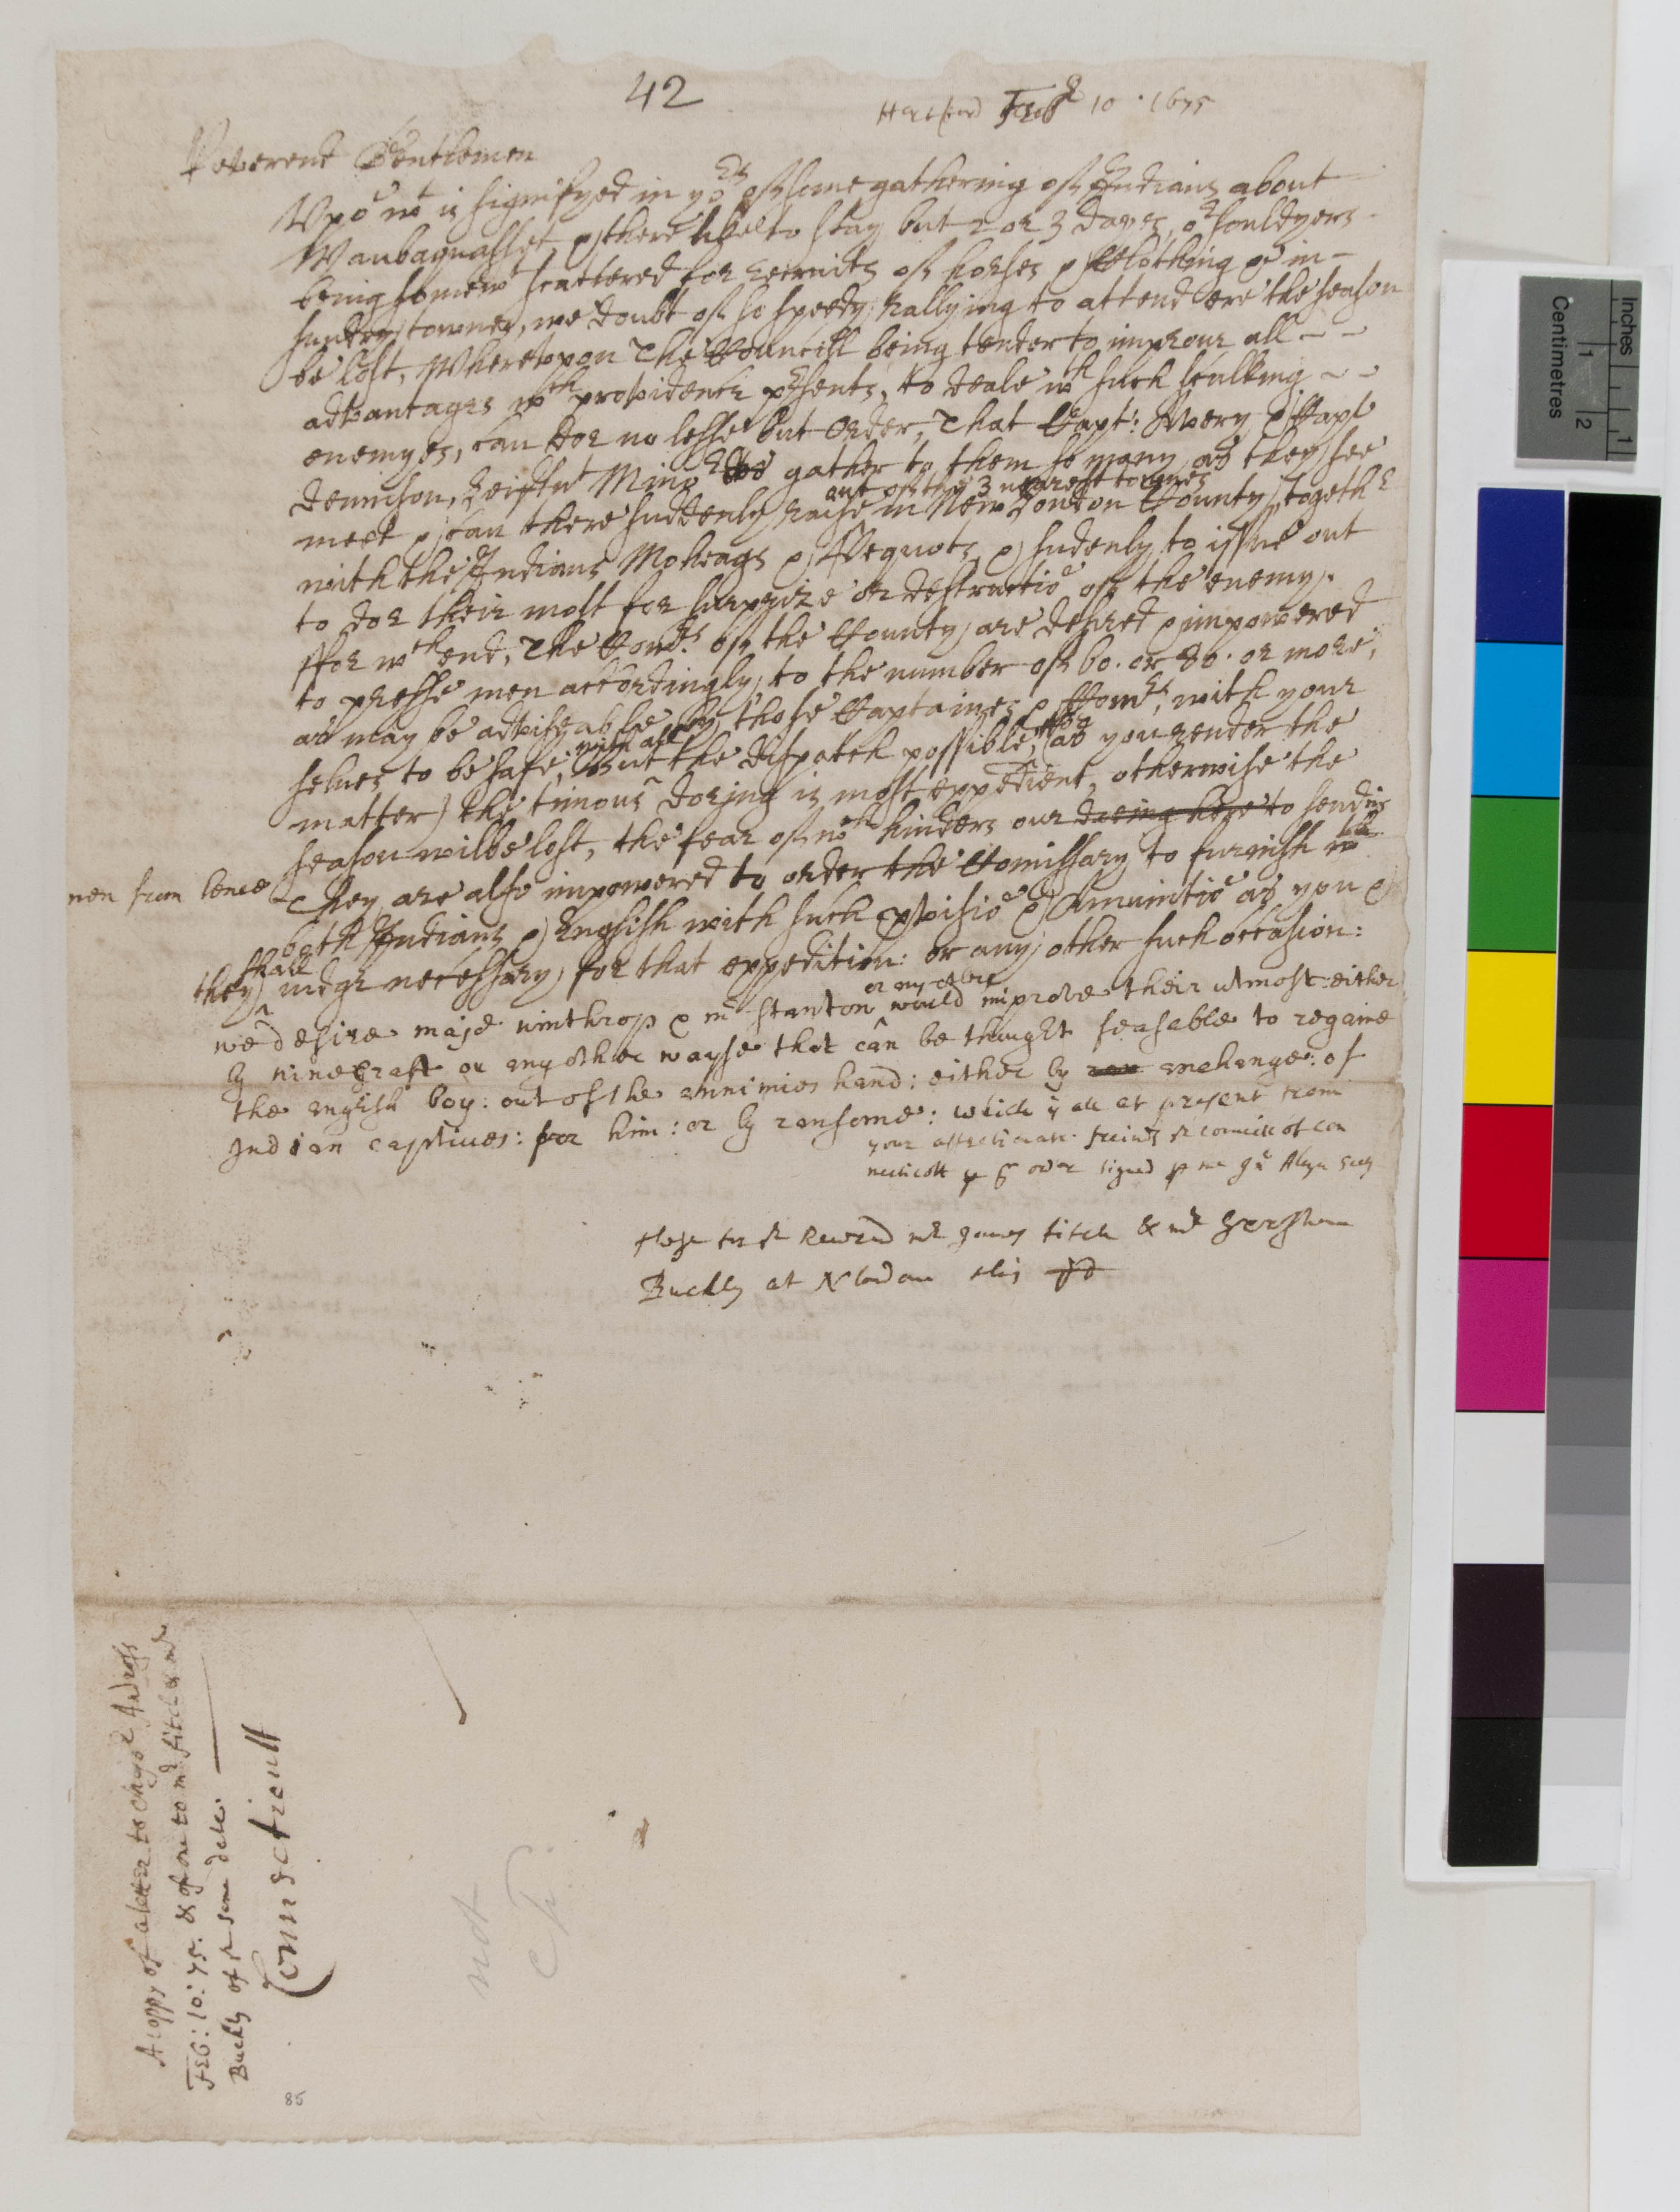 42
Hartford Febr 10 · 1675
Reverent Gentlemen
Vpō wt is signifyed in yors of some gathering of Indians about
Waubaquasset, & there like to stay but 2 or 3 dayes, or souldyers
being somewt scattered for recruits of horses & clothing &c in-
sundry townes, we doubt of so speedy rallying to attend ere the season
be lost, Whereupon The Councill being tender to improue all - -
advantages wch providence prsents, to deale wth such sculking - -
enemyes, can doe no lesse but Order, That Capt: Avery, & Capt
Denison, Leiftnt Minor gather to them so many as they see
out of the 3 nearest townes
meet & can there suddenly raise in New London County, togethr
with the Indians Moheags & Pequots & sudenly to issue out
to doe their most for surprize or destructiō of the enemy.
ffor wch end, The Comrs of the County are desired & impowered
to presse men accordingly, to the number of 60. or 80. or more,
as may be adviseable by those Captaines & Comrs, with your
selues to be safe, but with all the dispatch possible, (for as you render the
matter) the timous doeing is most expedient, otherwise the
season wilbe lost, the fear of wch hinders our doeing here to sending
men from hence
They are also impowered to order the Comissary to furnish
both Indians & English with such pvisiō & Amunitiō as you &
they shall iudge necessary for that expedition: or any other such occasion:
or any other
we desire majr winthrop & mr Stanton would improve their utmost either
by ninecraft or any other wayse that can be thought feasable to regaine
the english boy: out of the ennimies hand: either by exchange: of
Indian captiues: for him: or by ransome: which is all at present from
your affectionate freinds the councill of Con
necticott p s order signed p me Jn Allyn Secy
these for the Reverend mr James Fitch & mr Gershom
Buckly at N london this dd
A coppy of a letter to Gov Andross
FEB: 10: 75. & of one to mr Fitch & mr
Buckly of the same date.
Connecticutt
not
85